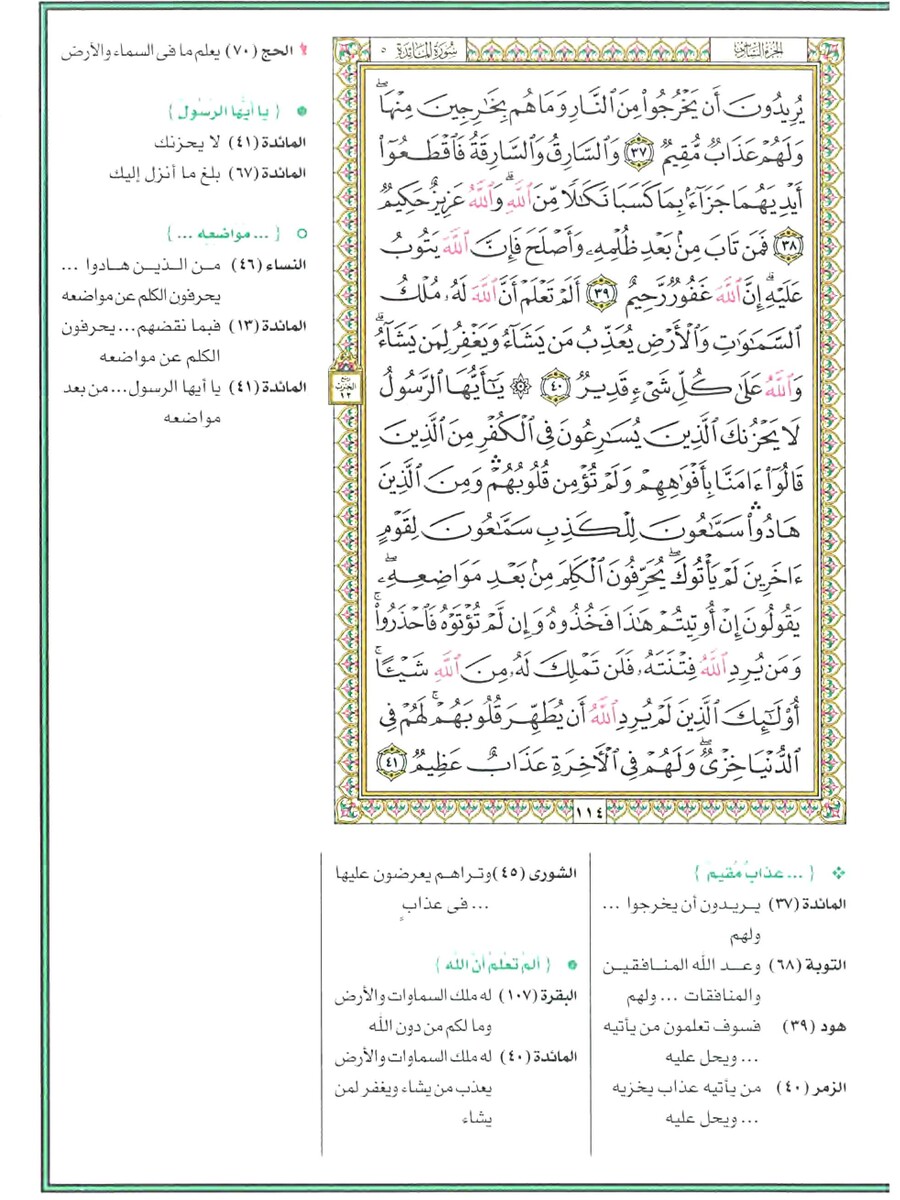 الجزء السادس
سورة المائدة ٥
يُرِيدُونَ أَن يَخْرُجُوا۟ مِنَ ٱلنَّارِ وَمَا هُم بِخَٰرِجِينَ مِنْهَا ۖ
وَلَهُمْ عَذَابٌ مُّقِيمٌ ٣٧ وَٱلسَّارِقُ وَٱلسَّارِقَةُ فَٱقْطَعُوٓا۟
أَيْدِيَهُمَا جَزَآءًۢ بِمَا كَسَبَا نَكَٰلًا مِّنَ ٱللَّهِ ۗ وَٱللَّهُ عَزِيزٌ حَكِيمٌ
٣٨ فَمَن تَابَ مِنۢ بَعْدِ ظُلْمِهِۦ وَأَصْلَحَ فَإِنَّ ٱللَّهَ يَتُوبُ
عَلَيْهِ ۗ إِنَّ ٱللَّهَ غَفُورٌ رَّحِيمٌ ٣٩ أَلَمْ تَعْلَمْ أَنَّ ٱللَّهَ لَهُۥ مُلْكُ
ٱلسَّمَٰوَٰتِ وَٱلْأَرْضِ يُعَذِّبُ مَن يَشَآءُ وَيَغْفِرُ لِمَن يَشَآءُ ۗ
وَٱللَّهُ عَلَىٰ كُلِّ شَىْءٍ قَدِيرٌ ٤٠ ۞ يَٰٓأَيُّهَا ٱلرَّسُولُ
لَا يَحْزُنكَ ٱلَّذِينَ يُسَٰرِعُونَ فِى ٱلْكُفْرِ مِنَ ٱلَّذِينَ
قَالُوٓا۟ ءَامَنَّا بِأَفْوَٰهِهِمْ وَلَمْ تُؤْمِن قُلُوبُهُمْ ۛ وَمِنَ ٱلَّذِينَ
هَادُوا۟ ۛ سَمَّٰعُونَ لِلْكَذِبِ سَمَّٰعُونَ لِقَوْمٍ
ءَاخَرِينَ لَمْ يَأْتُوكَ ۖ يُحَرِّفُونَ ٱلْكَلِمَ مِنۢ بَعْدِ مَوَاضِعِهِۦ ۖ
يَقُولُونَ إِنْ أُوتِيتُمْ هَٰذَا فَخُذُوهُ وَإِن لَّمْ تُؤْتَوْهُ فَٱحْذَرُوا۟ ۚ
وَمَن يُرِدِ ٱللَّهُ فِتْنَتَهُۥ فَلَن تَمْلِكَ لَهُۥ مِنَ ٱللَّهِ شَيْـًٔا ۚ
أُو۟لَٰٓئِكَ ٱلَّذِينَ لَمْ يُرِدِ ٱللَّهُ أَن يُطَهِّرَ قُلُوبَهُمْ ۚ لَهُمْ فِى
ٱلدُّنْيَا خِزْىٌ ۖ وَلَهُمْ فِى ٱلْءَاخِرَةِ عَذَابٌ عَظِيمٌ ٤١
١١٤
الحج (٧٠) يعلم ما فى السماء والأرض
{ يا أيها الرسول }
المائدة (٤١) لا يحزنك
المائدة (٦٧) بلغ ما أنزل إليك
{ ... مواضعه ... }
النساء (٤٦) مـن الـذيـن هـادوا ...
يحرفون الكلم عن مواضعه
المائدة (١٣) فبما نقضهم... يحرفون
الكلم عن مواضعه
المائدة (٤١) يا أيها الرسول... من بعد
مواضعه
{ ... عذابٌ مُقيمٌ }
المائدة (٣٧) يـريـدون أن يخرجوا ...
ولهم
التوبة (٦٨) وعـد الله المنـافقـين
والمنافقات ... ولهم
هود (٣٩) فسوف تعلمون من يأتيه
... ويحل عليه
الزمر (٤٠) من يأتيه عذاب يخزيه
... ويحل عليه
الشورى (٤٥) وتراهم يعرضون عليها
... فى عذابٍ
{ ألم تعلم أن الله }
البقرة (١٠٧) له ملك السماوات والأرض
وما لكم من دون الله
المائدة (٤٠) له ملك السماوات والأرض
يعذب من يشاء ويغفر لمن
يشاء